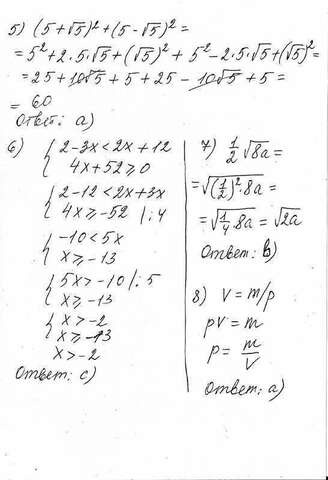 5) (5+√5)² + (5-√5)² =
= 5² + 2·5·√5 + (√5)² + 5² - 2·5·√5 + (√5)² =
= 25 + 10√5 + 5 + 25 - 10√5 + 5 =
= 60
Ответ: а)
6) { 2-3x < 2x + 12
4x + 52 ≥ 0
{ 2-12 < 2x + 3x
4x ≥ -52 | :4
{ -10 < 5x
x ≥ -13
{ 5x > -10 | :5
x ≥ -13
{ x > -2
x ≥ -13
x > -2
Ответ: c)
7) 1/2 √8a =
= √(1/2)²·8a =
= √1/4·8a = √2a
Ответ: b)
8) V = m/p
pV = m
p = m/V
Ответ: а)